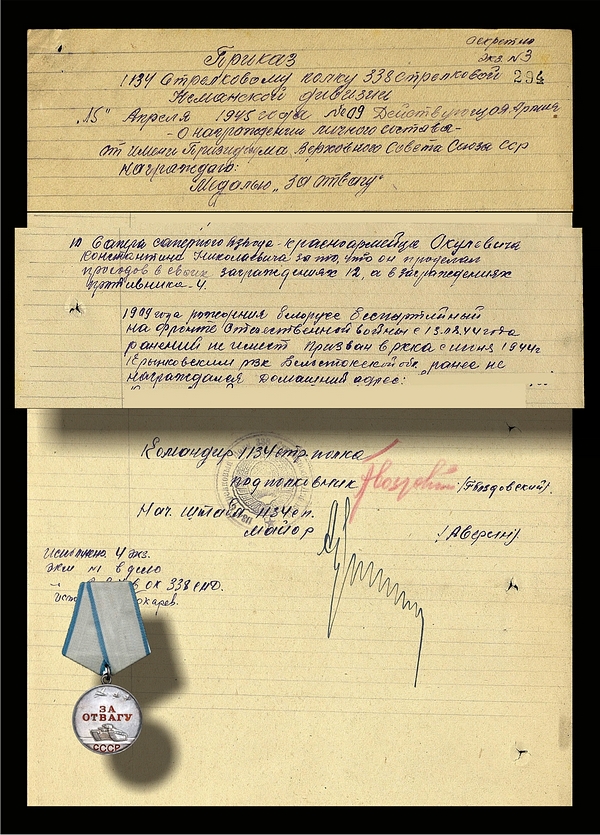 секретно
экз. N 3
Приказ
1134 Стрелковому полку 338 стрелковой
294
Неманской дивизии
"15" Апреля 1945 года №09 Действующая Армия
- О награждении личного состава -
от имени Призидиума Верховного Совета Союза ССР
Награждаю:
Медалью "За отвагу"
10 Сапера саперного взвода - красноармейца Окуловича
Константина Николаевича за то, что он проделал
проходов в своих заграждениях 12, а в заграждениях
противника - 4.
1909 года рождения белорус беспартийный
на фронте Отечественной войны с 13.08.44 года
ранений не имеет Призван в РККА с июня 1944г
Крынковским РВК Белостокской обл. ранее не
награждался Домашний адрес:
Командир 1134 стр. полка
подполковник (Гвоздовский).
Нач. штаба 1134 сп.
майор (Аверин)
Исполнено 4 экз.
экз N1 в дело
ок 338 СНД.
ЗА
ОТВАГУ
СССР